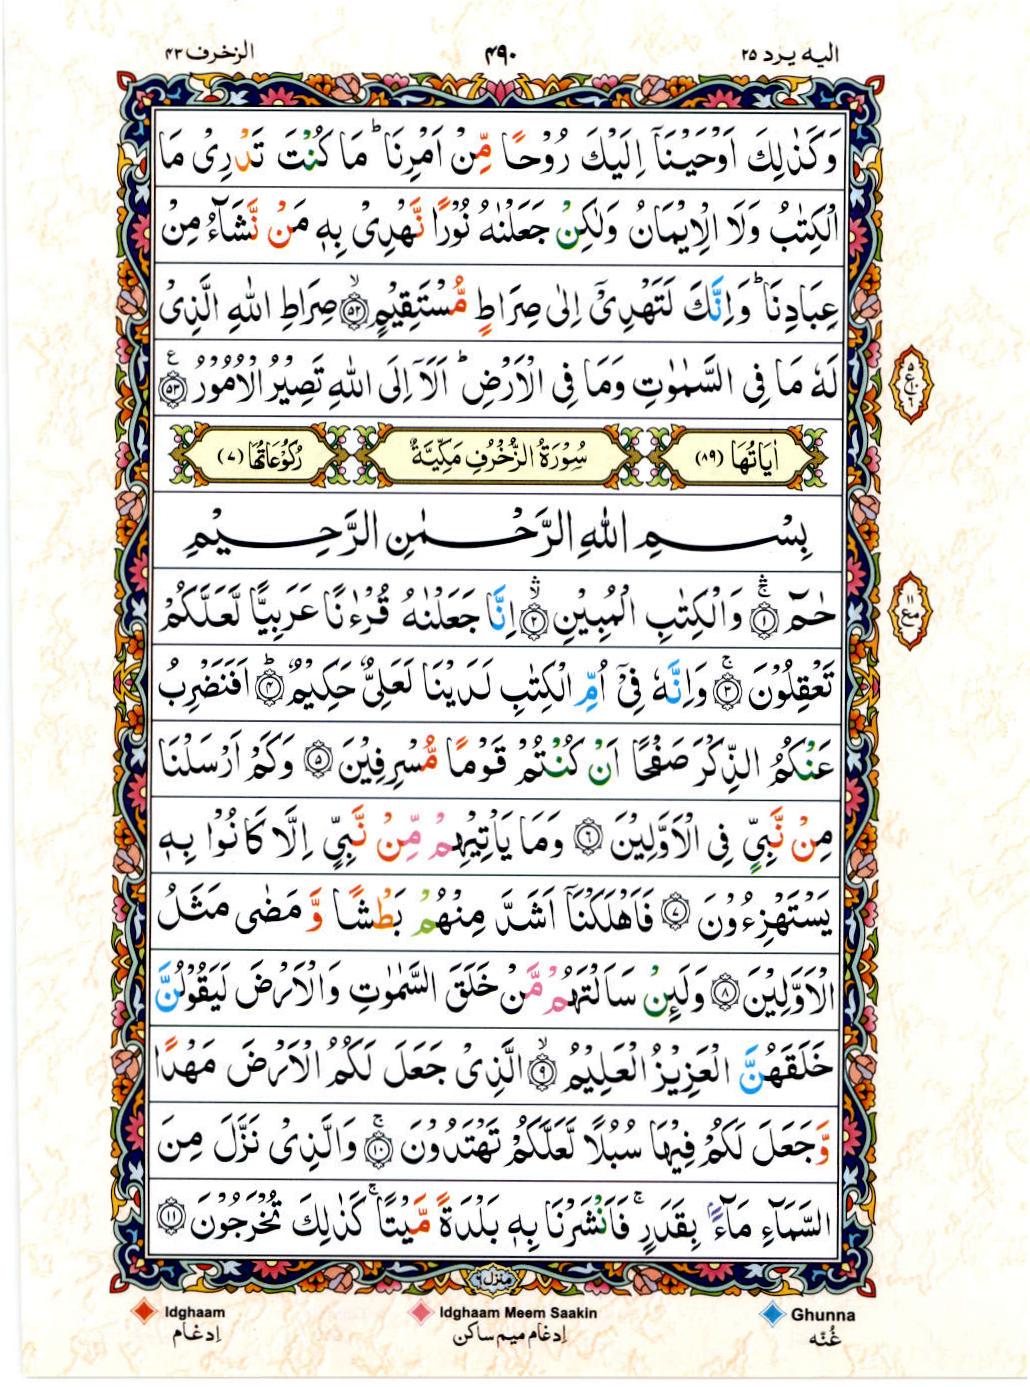 الیه یرد ۲۵
۴۹۰
الزخرف ۴۳
وَكَذٰلِكَ اَوْحَيْنَاۤ اِلَيْكَ رُوْحًا مِّنْ اَمْرِنَا ؕ مَا كُنْتَ تَدْرِىْ مَا
الْكِتٰبُ وَلَا الْاِيْمَانُ وَلٰكِنْ جَعَلْنٰهُ نُوْرًا نَّهْدِىْ بِهٖ مَنْ نَّشَآءُ مِنْ
عِبَادِنَا ؕ وَاِنَّكَ لَتَهْدِىْۤ اِلٰى صِرَاطٍ مُّسْتَقِيْمٍ ۙ‏ ﴿۵۲﴾ صِرَاطِ اللّٰهِ الَّذِىْ
لَهٗ مَا فِى السَّمٰوٰتِ وَمَا فِى الْاَرْضِ ؕ اَلَاۤ اِلَى اللّٰهِ تَصِيْرُ الْاُمُوْرُ ﴿۵۳﴾ ع
۵
ع ۱۰
۶
اٰيَاتُهَا (۸۹)
سُوْرَةُ الزُّخْرُفِ مَكِّيَّةٌ
رُكُوْعَاتُهَا (۷)
بِسْمِ اللّٰهِ الرَّحْمٰنِ الرَّحِيْمِ
حٰمٓ ۚ‏ۛ ﴿۱﴾ وَالْكِتٰبِ الْمُبِيْنِ ۙ‏ۛ ﴿۲﴾ اِنَّا جَعَلْنٰهُ قُرْءٰنًا عَرَبِيًّا لَّعَلَّكُمْ
۱۱
مع
تَعْقِلُوْنَ ۚ‏ ﴿۳﴾ وَاِنَّهٗ فِىْۤ اُمِّ الْكِتٰبِ لَدَيْنَا لَعَلِىٌّ حَكِيْمٌ ؕ‏ ﴿۴﴾ اَفَنَضْرِبُ
عَنْكُمُ الذِّكْرَ صَفْحًا اَنْ كُنْتُمْ قَوْمًا مُّسْرِفِيْنَ ﴿۵﴾ وَكَمْ اَرْسَلْنَا
مِنْ نَّبِىٍّ فِى الْاَوَّلِيْنَ ﴿۶﴾ وَمَا يَاْتِيْهِمْ مِّنْ نَّبِىٍّ اِلَّا كَانُوْا بِهٖ
يَسْتَهْزِءُوْنَ ﴿۷﴾ فَاَهْلَكْنَاۤ اَشَدَّ مِنْهُمْ بَطْشًا وَّ مَضٰى مَثَلُ
الْاَوَّلِيْنَ ﴿۸﴾ وَلَئِنْ سَاَلْتَهُمْ مَّنْ خَلَقَ السَّمٰوٰتِ وَالْاَرْضَ لَيَقُوْلُنَّ
خَلَقَهُنَّ الْعَزِيْزُ الْعَلِيْمُ ۙ‏ ﴿۹﴾ الَّذِىْ جَعَلَ لَكُمُ الْاَرْضَ مَهْدًا
وَّجَعَلَ لَكُمْ فِيْهَا سُبُلًا لَّعَلَّكُمْ تَهْتَدُوْنَ ۚ‏ ﴿۱۰﴾ وَالَّذِىْ نَزَّلَ مِنَ
السَّمَآءِ مَآءًۢ بِقَدَرٍ ۚ فَاَنْشَرْنَا بِهٖ بَلْدَةً مَّيْتًا ۚ كَذٰلِكَ تُخْرَجُوْنَ ﴿۱۱﴾
منزل ۶
Idghaam
Idghaam Meem Saakin
Ghunna
اِدغام
اِدغام میم ساکن
غُنّه